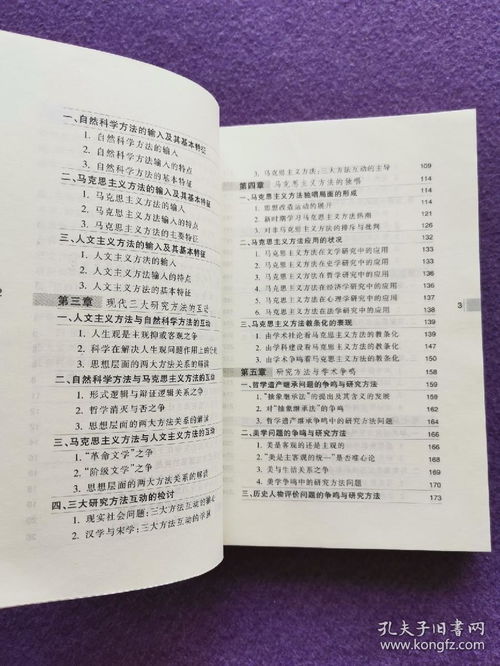 一、自然科学方法的输入及其基本特征
1. 自然科学方法的输入
2. 自然科学方法输入的特点
3. 自然科学方法的基本特征
二、马克思主义方法的输入及其基本特征
1. 马克思主义方法的输入
2. 马克思主义方法输入的特点
3. 马克思主义方法的主要特征
三、人文主义方法的输入及其基本特征
1. 人文主义方法的输入
2. 人文主义方法输入的特点
3. 人文主义方法的基本特征
第三章 现代三大研究方法的互动
一、人文主义方法与自然科学方法的互动
1. 人生观是主观抑或客观之争
2. 科学在解决人生观问题作用上的分歧
3. 思想层面的两大方法关系的解读
二、自然科学方法与马克思主义方法的互动
1. 形式逻辑与辩证逻辑关系之争
2. 哲学消灭与否之争
3. 思想层面的两大方法关系的解读
三、马克思主义方法与人文主义方法的互动
1. “革命文学”之争
2. “阶级文学”之争
3. 思想层面的两大方法关系的解读
四、三大研究方法互动的检讨
1. 现实社会问题:三大方法互动的轴心
2. 汉学与宋学:三大方法互动的学脉
2
3. 马克思主义方法:三大方法互动的主导 109
第四章 马克思主义方法的独唱 114
一、马克思主义方法独唱局面的形成 114
1. 思想改造运动的展开 114
2. 新时期学习马克思主义方法热潮 121
3. 对非马克思主义方法的排斥与批判 127
二、马克思主义方法应用的状况 132
1. 马克思主义方法在文学研究中的应用 132
2. 马克思主义方法在史学研究中的应用 133
3. 马克思主义方法在哲学研究中的应用
4. 马克思主义方法在经济学研究中的应用
5. 马克思主义方法在心理学研究中的应用
6. 马克思主义方法在法学研究中的应用 138
三、马克思主义方法教条化的表现 139
1. 由学术社论看马克思主义方法的教条化 139
2. 由学科建设看马克思主义方法的教条化 143
3. 由学术争鸣看马克思主义方法的教条化 150
第五章 研究方法与学术争鸣 158
一、哲学遗产继承问题的争鸣与研究方法 159
1. “抽象继承法”的提出及其含义的发展 159
2. 对“抽象继承法”的争鸣 162
3. 哲学遗产继承争鸣中的研究方法问题 164
二、美学问题的争鸣与研究方法 166
1. 美是客观的还是主观的 166
2. “美是主客观的统一”是否唯心论
3. 美与生活关系之争
4. 美学争鸣中的研究方法问题 170
三、历史人物评价问题的争鸣与研究方法 173
3
孔夫子旧书网
www.kongfz.com